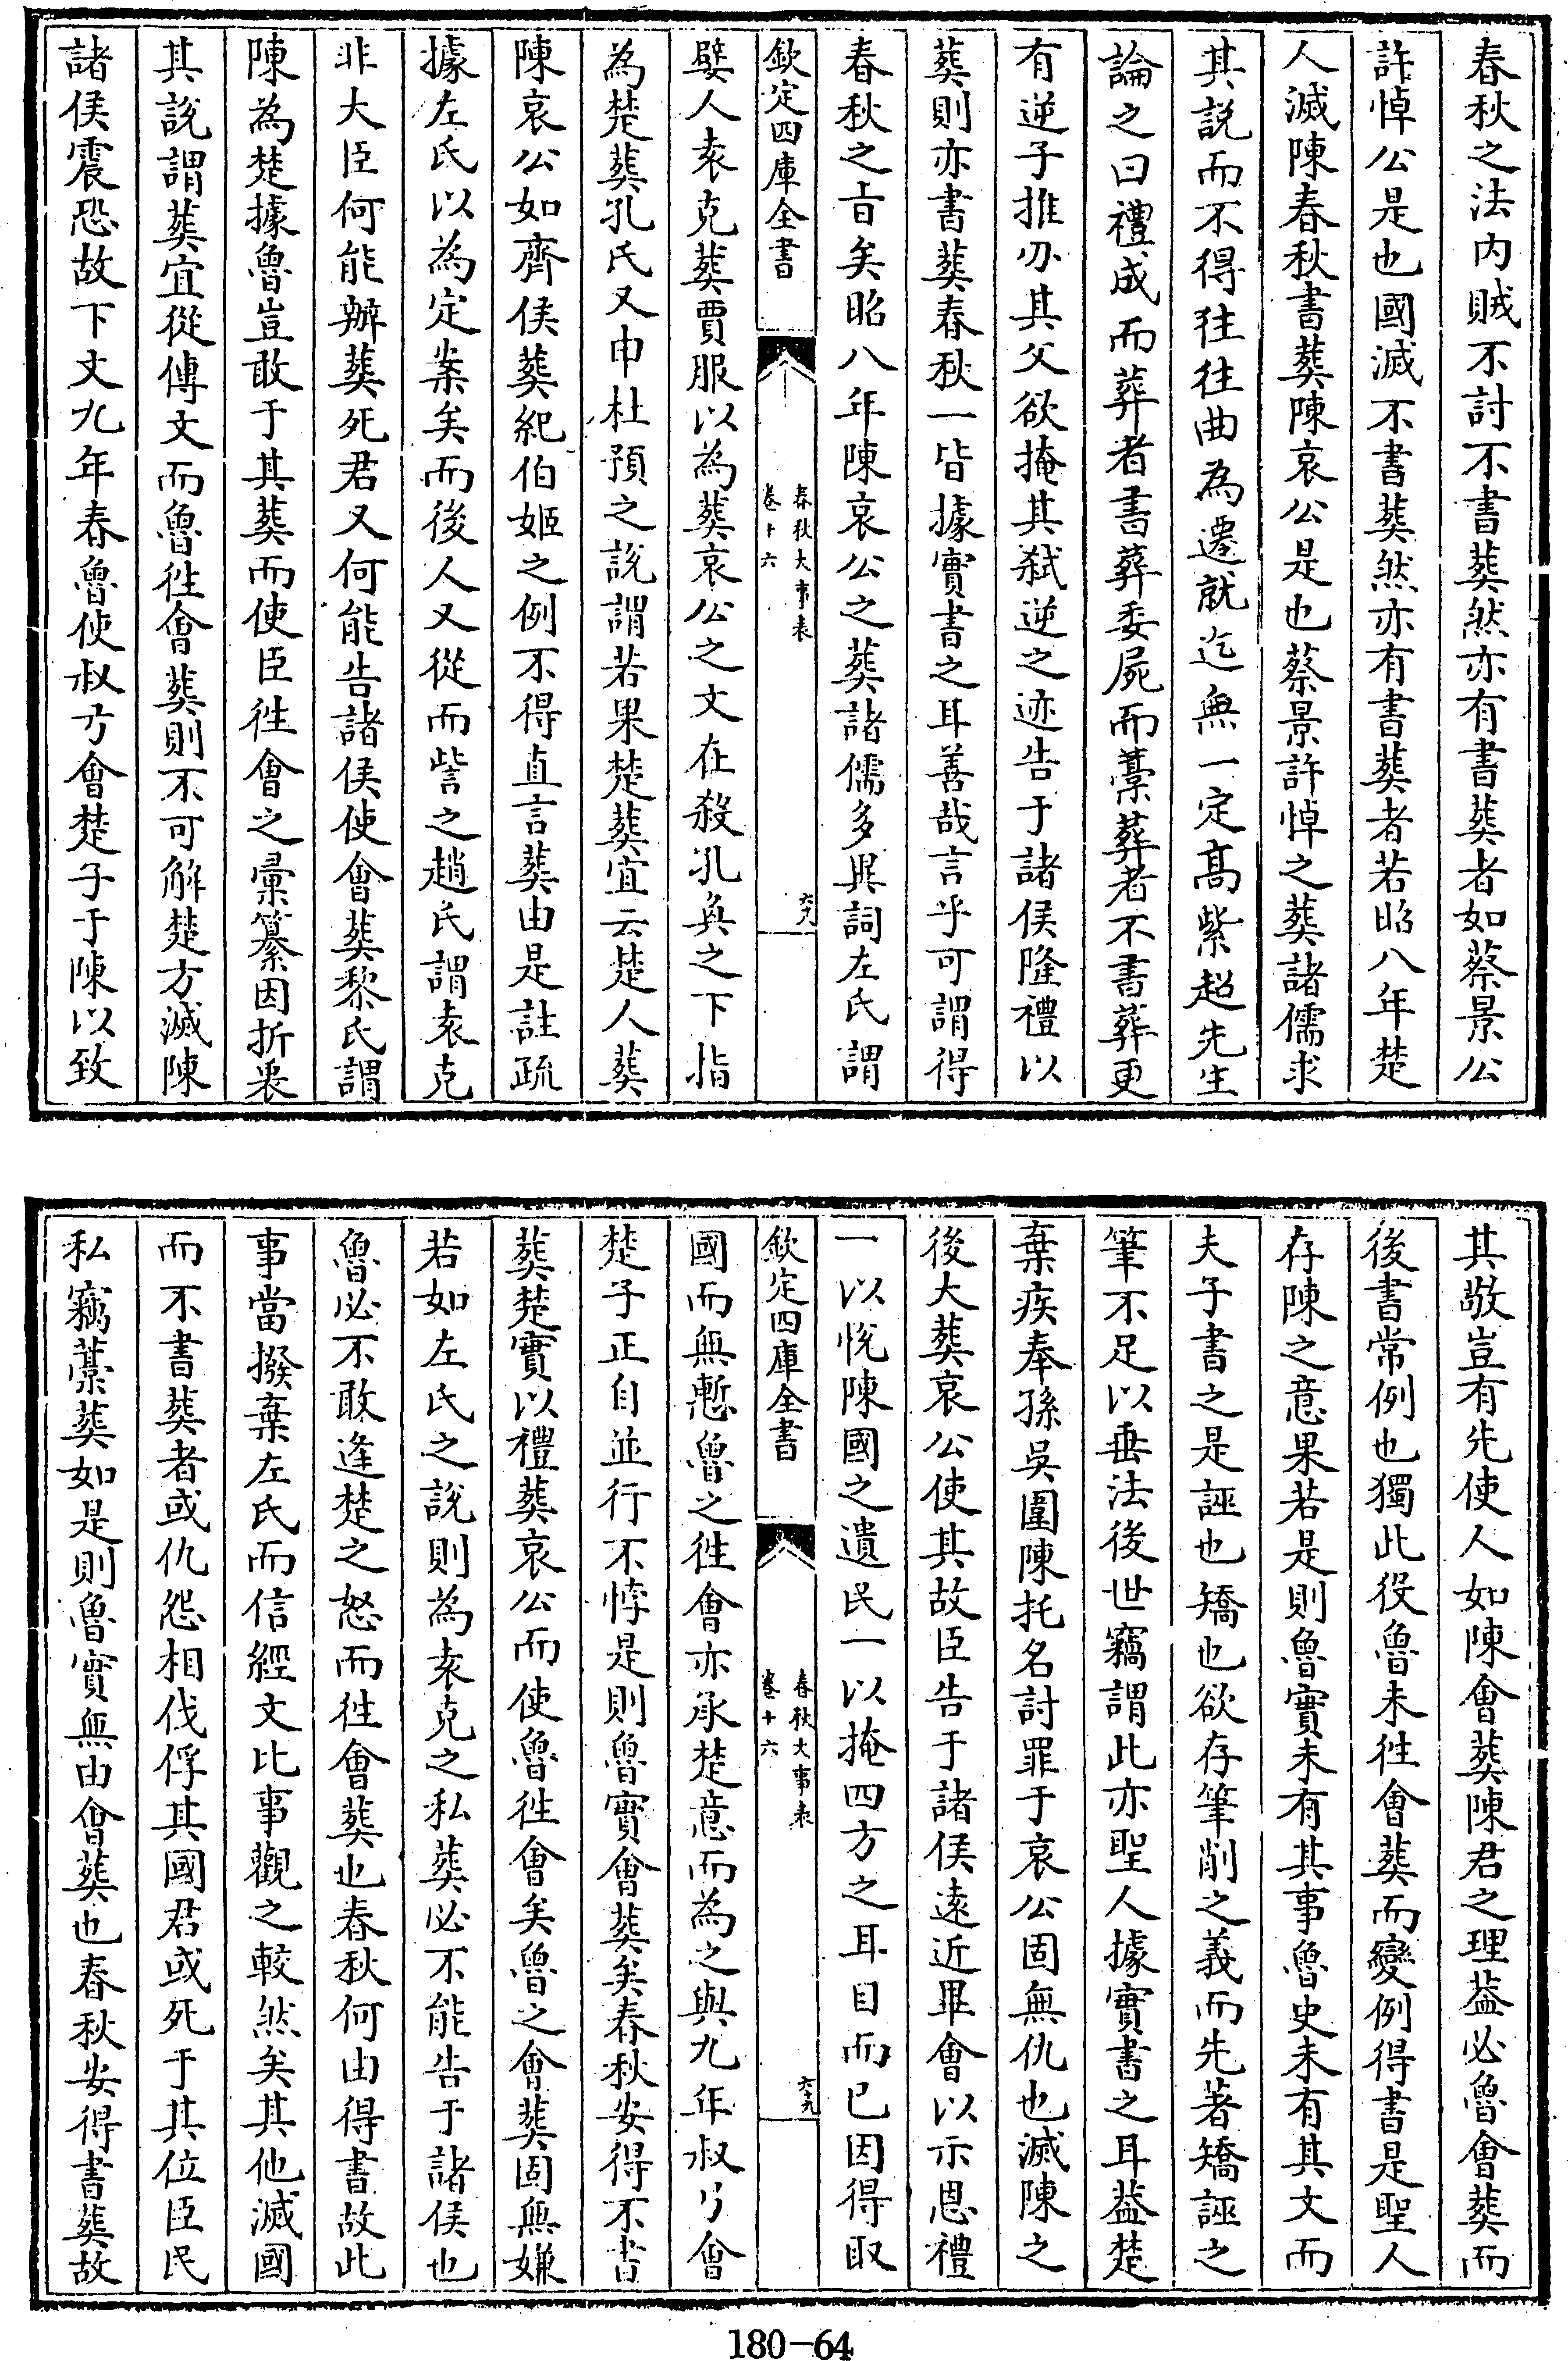 春秋之法内賊不討不書葬然亦有書葬者如蔡景公
許悼公是也國滅不書葬然亦有書葬者若昭八年楚
人滅陳春秋書葬陳哀公是也蔡景許悼之葬諸儒求
其説而不得往往曲為遷就迄無一定髙紫超先生
論之曰禮成而葬者書葬委屍而藁葬者不書葬更
有逆子推刃其父欲掩其弑逆之迹告于諸侯隆禮以
葬則亦書葬春秋一皆據實書之耳善哉言乎可謂得
春秋之旨矣昭八年陳哀公之葬諸儒多異詞左氏謂
欽定四庫全書
春秋大事表
卷十六
六九
嬖人袁克葬賈服以為葬哀公之文在殺孔奐之下指
為楚葬孔氏又申杜預之説謂若果楚葬宜云楚人葬
陳哀公如齊侯葬紀伯姬之例不得直言葬由是註疏
據左氏以為定案矣而後人又從而訾之趙氏謂袁克
非大臣何能辦葬死君又何能告諸侯使會葬黎氏謂
陳為楚據魯豈敢于其葬而使臣徃會之彚纂因折衷
其説謂葬宜從傳文而魯徃會葬則不可解楚方滅陳
諸侯震恐故下文九年春魯使叔弓會楚子于陳以致
其敬豈有先使人如陳會葬陳君之理葢必魯會葬而
後書常例也獨此役魯未徃會葬而變例得書是聖人
存陳之意果若是則魯實未有其事魯史未有其文而
夫子書之是誣也矯也欲存筆削之義而先著矯誣之
筆不足以垂法後世竊謂此亦聖人據實書之耳葢楚
棄疾奉孫吳圍陳托名討罪于哀公固無仇也滅陳之
後大葬哀公使其故臣告于諸侯遠近畢會以示恩禮
一以悦陳國之遺民一以掩四方之耳目而已因得取
欽定四庫全書
春秋大事表
卷十六
六九
國而無慙魯之徃會亦承楚意而為之與九年叔弓會
楚子正自並行不悖是則魯實會葬矣春秋安得不書
葬楚實以禮葬哀公而使魯徃會矣魯之會葬固無嫌
若如左氏之説則為袁克之私葬必不能告于諸侯也
魯必不敢逢楚之怒而徃會葬也春秋何由得書故此
事當撥棄左氏而信經文比事觀之較然矣其他滅國
而不書葬者或仇怨相伐俘其國君或死于其位臣民
私竊藁葬如是則魯實無由會葬也春秋安得書葬故
180-64